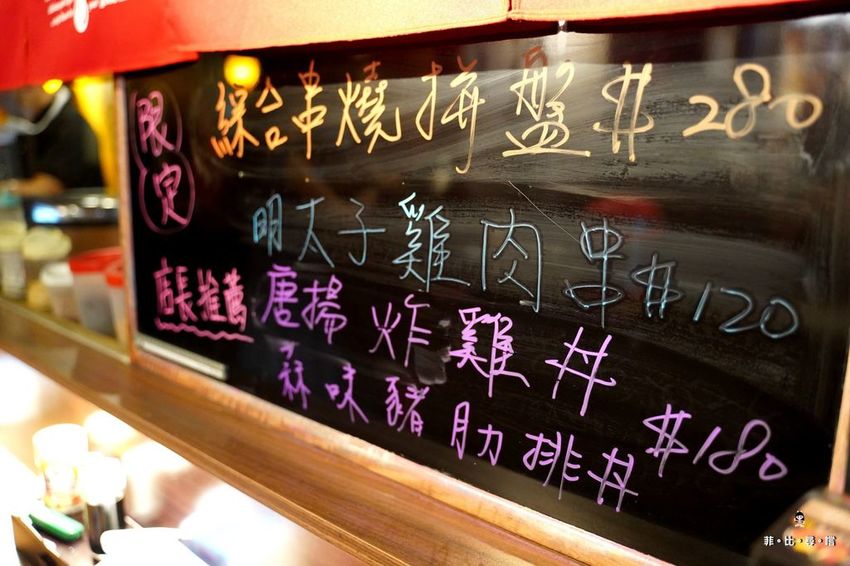 限定
綜合串燒拼盤 $280
明太子雞肉串 $120
店長推薦
唐揚炸雞丼
蒜味豬肋排丼 $180
菲•比•尋•橙